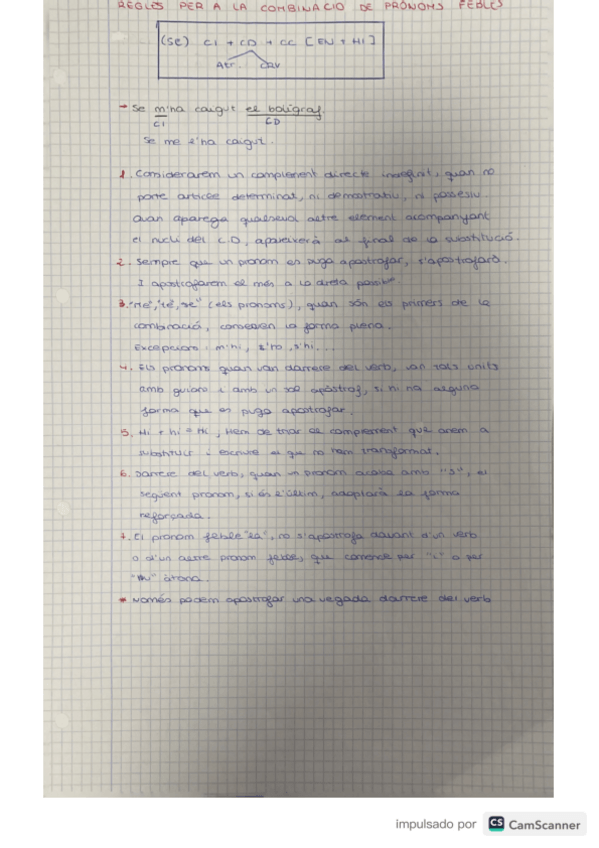 REGLES PER A LA COMBINACIÓ DE PRONOMS FEBLES
(SE) CI + CD + CC [EN + HI]
Atr. CRV
→ Se m'ha caigut el bolígraf.
CI CD
Se me l'ha caigut.
1. Considerarem un complement directe indefinit, quan no
porte article determinat, ni demostratiu, ni possesiu.
Quan aparega qualsevol altre element acompanyant
el nucli del C.D, apareixerà al final de la substitució.
2. Sempre que un pronom es puga apostrofar, s'apostrofarà.
I apostrofarem el més a la dreta possible.
3. "Me", "te", "se" (els pronoms), quan són els primers de la
combinació, conserven la forma plena.
Excepcions: m'hi, s'ho, s'hi...
4. Els pronoms quan van darrere del verb, van tots units
amb guions i amb un sol apòstrof, si hi ha alguna
forma que es puga apostrofar.
5. Hi + hi = Hi, Hem de triar el complement que anem a
substituir i escriure el que no hem transformat.
6. Darrere del verb, quan un pronom acaba amb "s", el
següent pronom, si és l'últim, adoptarà la forma
reforçada.
7. El pronom feble "la", no s'apostrofa davant d'un verb
o d'un altre pronom feble, que comence per "i" o per
àtona.
* Només podem apostrofar una vegada darrere del verb
impulsado por CS CamScanner